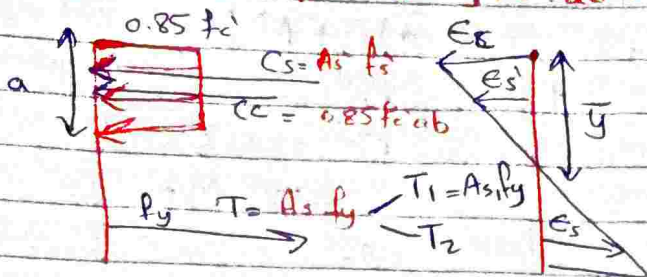 0.85 fc'
a
Cs = As' fs'
Cc = 0.85 fc ab
ϵc
ϵs'
y̅
fy T = As fy T1 = As1 fy
T2
ϵs